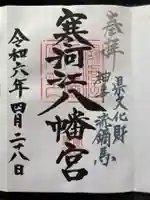 奉拝
県文化財
神事 流鏑馬
寒河江八幡宮
令和六年四月二十八日